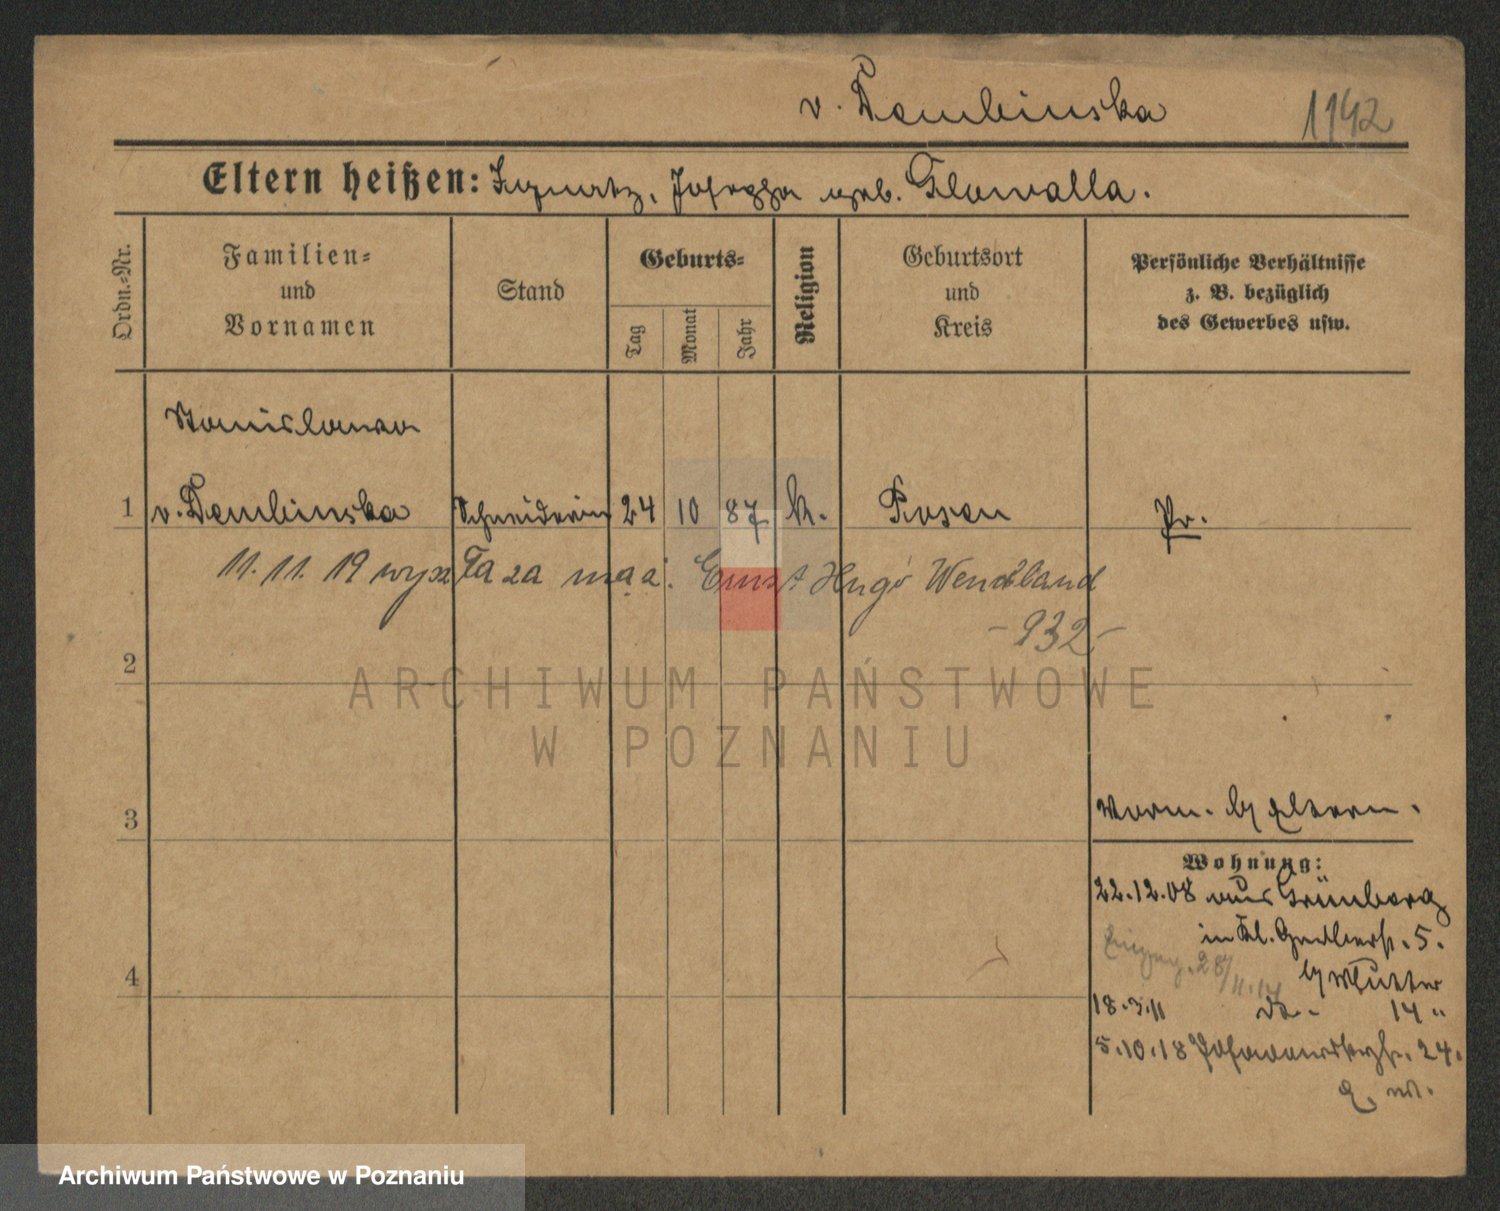 v. Dembinska 1142
Eltern heißen: Ignatz, Josepha geb. Glowalla.
Ordn.-Nr.
Familien-
und
Vornamen
Stand
Geburts-
Tag
Monat
Jahr
Religion
Geburtsort
und
Kreis
Persönliche Verhältnisse
z. B. bezüglich
des Gewerbes usw.
Stanislawa
1 v. Dembinska Schneiderin 24 10 87 k. Posen Pr.
11. 11. 19 wyszła za mąż. Ernst Hugo Wendland
- 932 -
2
ARCHIWUM PAŃSTWOWE
W POZNANIU
3
Vorm. b/ Eltern.
Wohnung:
22.12.08 aus Grünberg
in Kl. Gerberstr. 5.
28/11.14
b/ Mutter
4
18.3.11 do. 14 "
5.10.18 24.
Archiwum Państwowe w Poznaniu